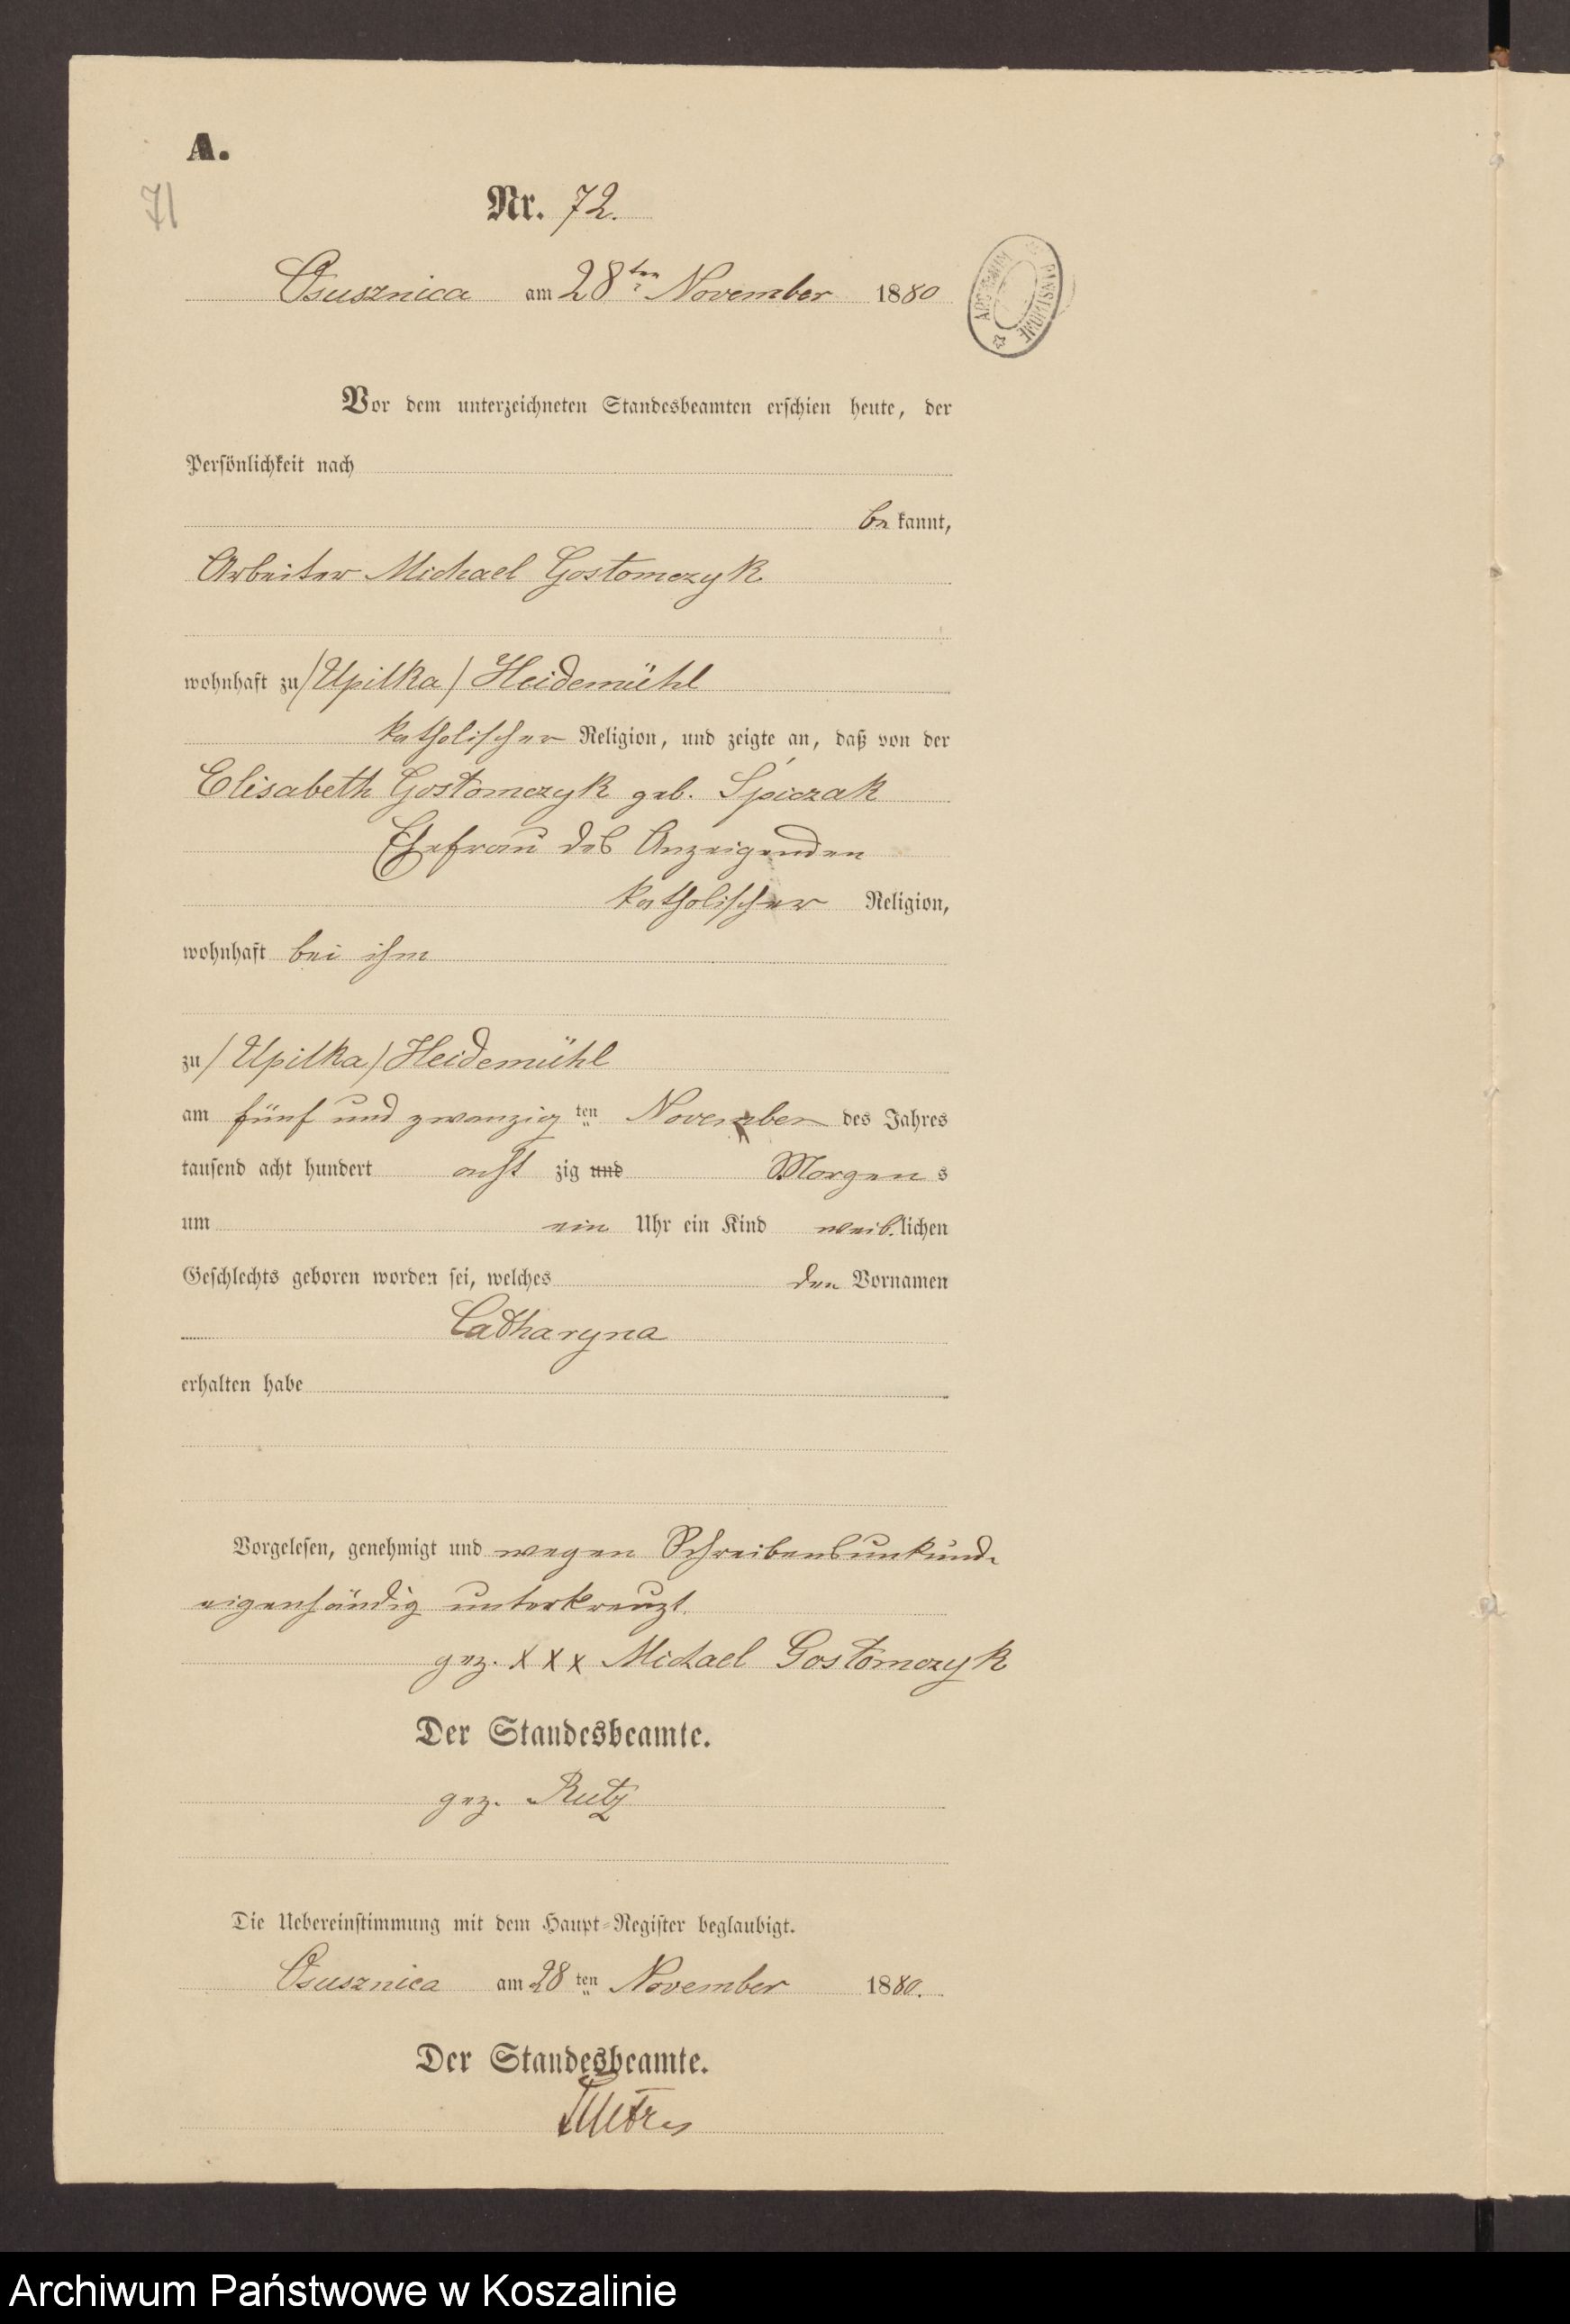 A.
71
Nr. 72.
Osusznica am 28ten November 1880
ARCHIWUM PAŃSTWOWE
Vor dem unterzeichneten Standesbeamten erschien heute, der
Persönlichkeit nach
be kannt,
Arbeiter Michael Gostomczyk
wohnhaft zu /Upilka/ Heidemühl
katholischer Religion, und zeigte an, daß von der
Elisabeth Gostomczyk geb. Spiczak
Ehefrau des Anzeigenden
katholischer Religion,
wohnhaft bei ihm
zu /Upilka/ Heidemühl
am fünf und zwanzig ten November des Jahres
tausend acht hundert acht zig und Morgen s
um ein Uhr ein Kind weib.lichen
Geschlechts geboren worden sei, welches den Vornamen
Catharyna
erhalten habe
Vorgelesen, genehmigt und wegen Schreibensunkunde
eigenhändig unterkreuzt.
gez. x x x Michael Gostomczyk
Der Standesbeamte.
gez. Rutz
Die Uebereinstimmung mit dem Haupt-Register beglaubigt.
Osusznica am 28 ten November 1880.
Der Standesbeamte.
Archiwum Państwowe w Koszalinie